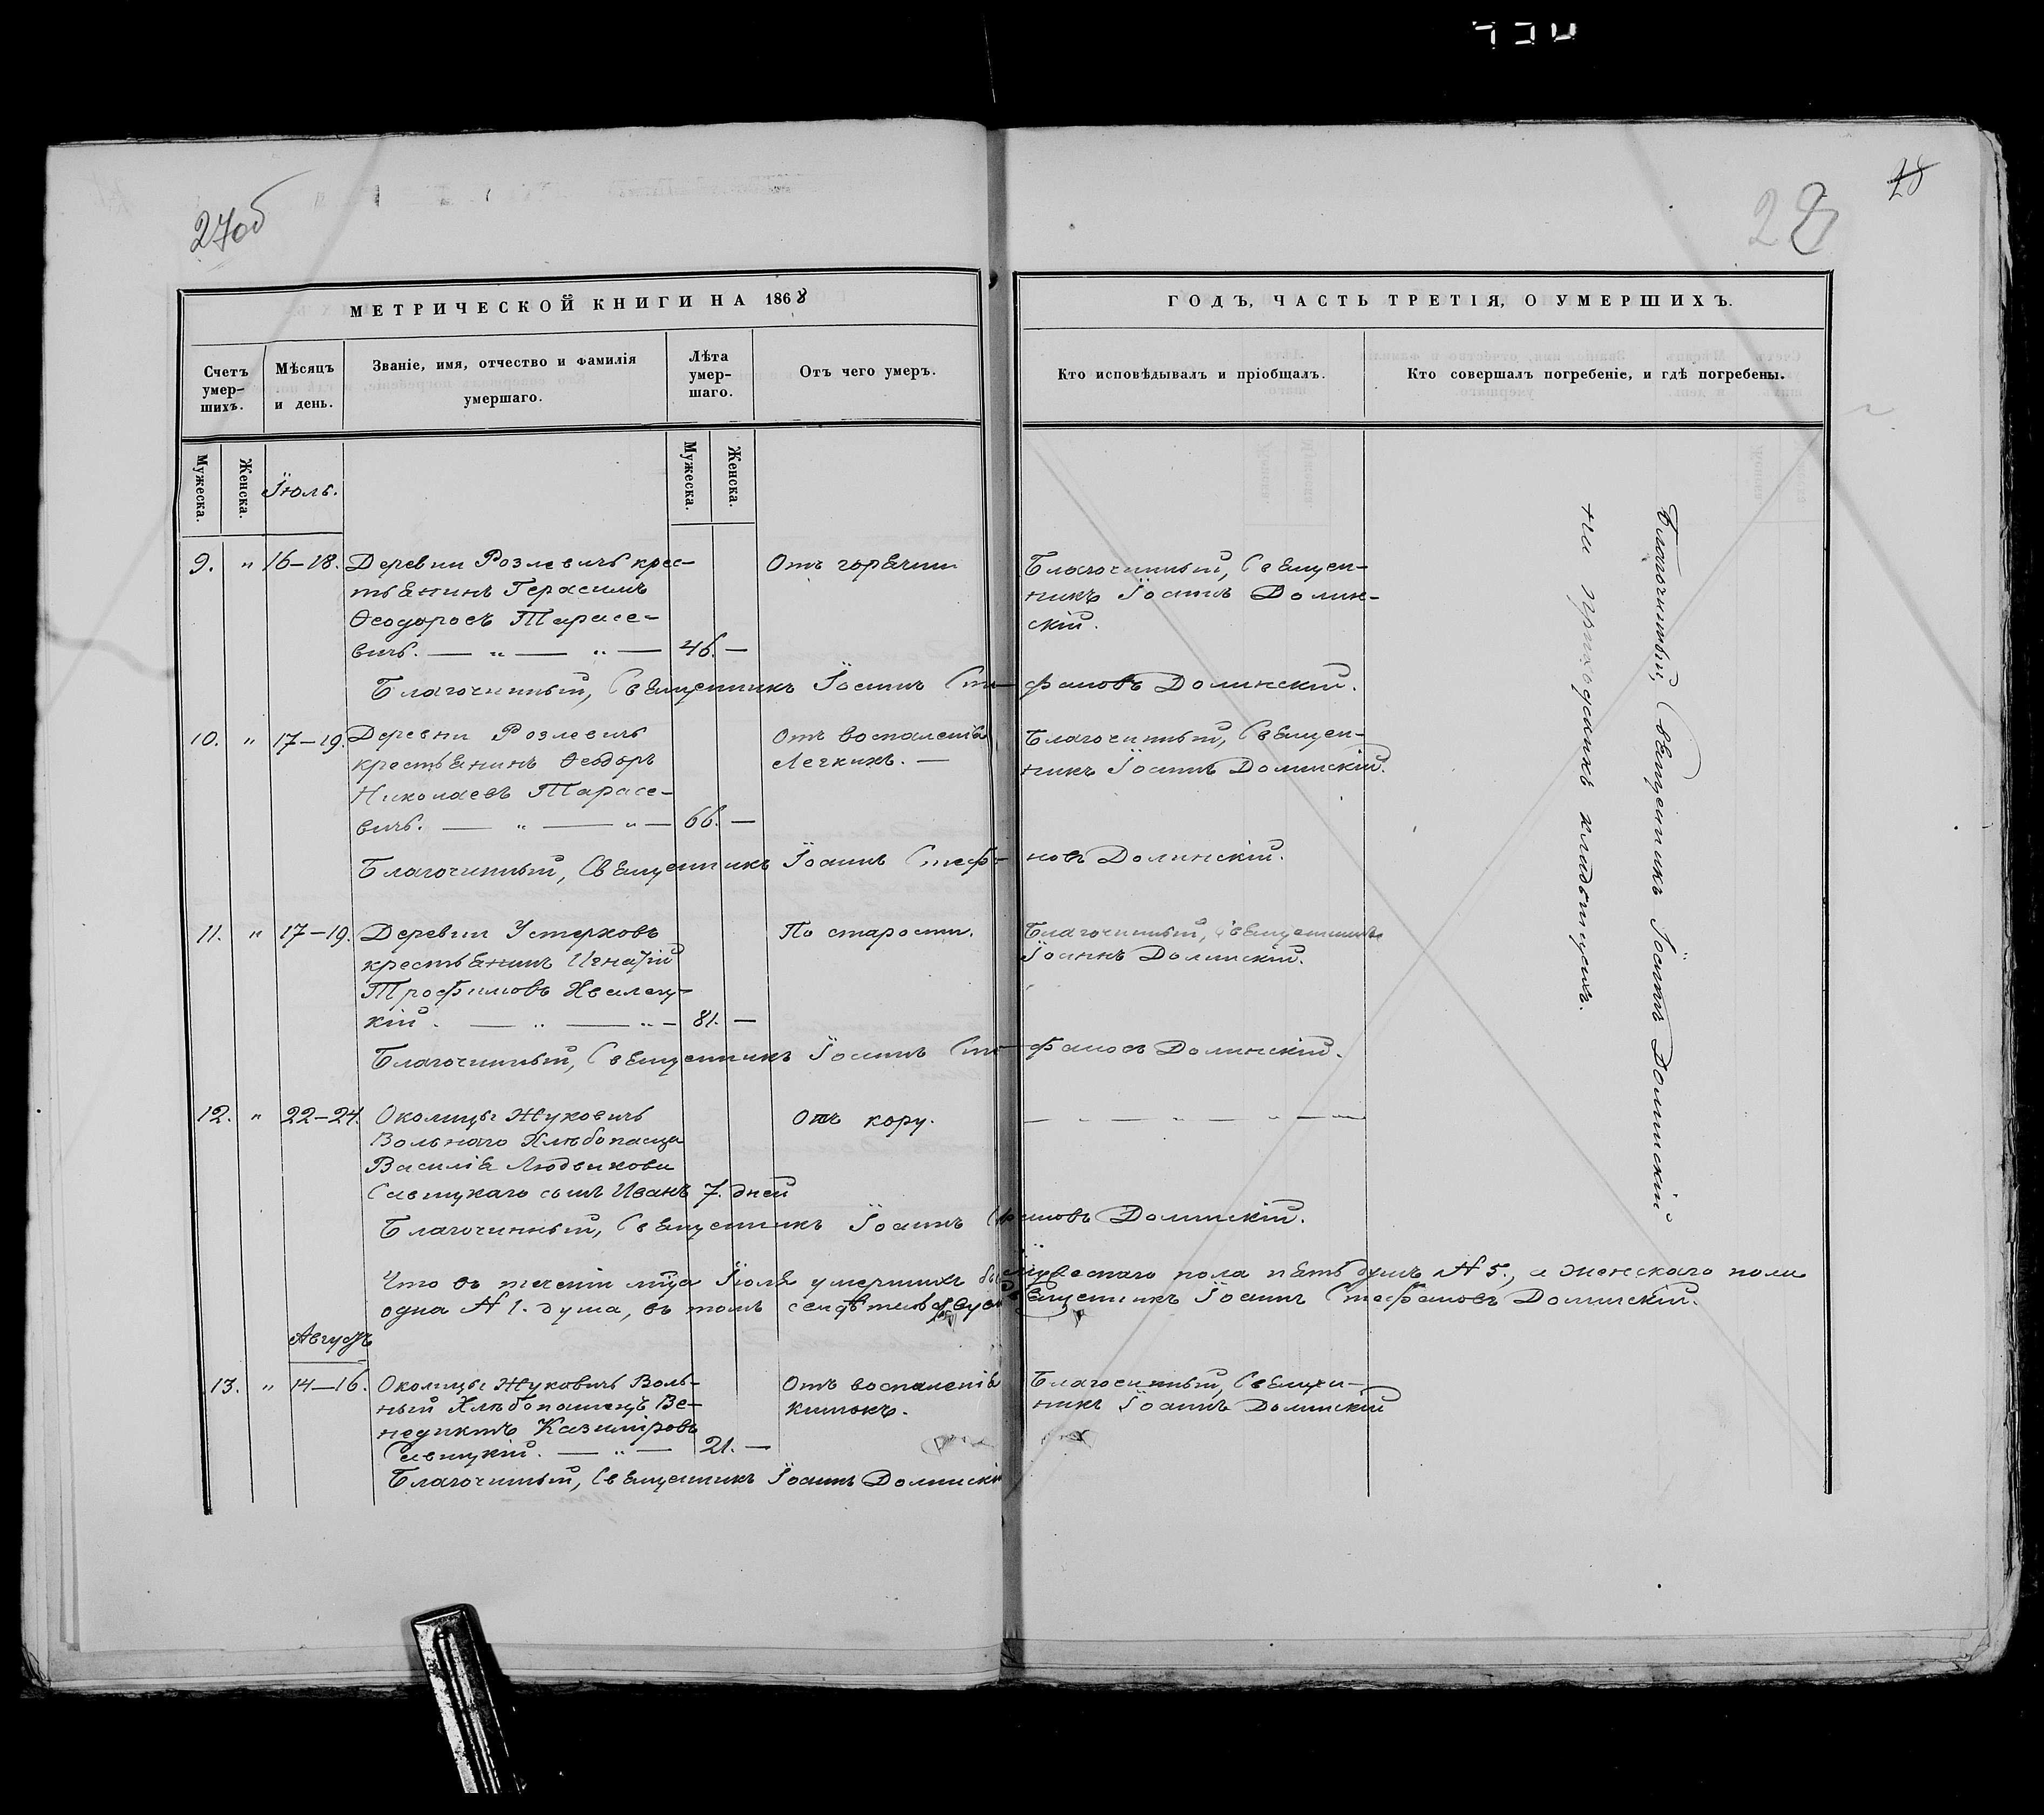 27об
28
28
МЕТРИЧЕСКОЙ КНИГИ НА 1868
ГОДЪ, ЧАСТЬ ТРЕТІЯ, О УМЕРШИХЪ.
Счетъ умер-
шихъ.
Мѣсяцъ
и день.
Званіе, имя, отчество и фамилія
умершаго.
Лѣта
умер-
шаго.
Отъ чего умеръ.
Кто исповѣдывалъ и пріобщалъ.
Кто совершалъ погребеніе, и гдѣ погребены.
Мужеска.
Женска.
Іюль.
Мужеска.
Женска.
9. " 16–18. Деревни Розмевичь крес-
тьянинъ Герасимъ
Ѳеодоровъ Тарасе-
вичь. — " — " — 46. —
Отъ горячки
Благочинный, Священ-
никъ Іоаннъ Долин-
скій.
Благочинный, Священникъ Іоаннъ Сте-фановъ Долинскій.
10. " 17–19. Деревни Розмевичь
крестьянинъ Ѳеодоръ
Николаевъ Тарасе-
вичь. — " — " — 66. —
Отъ воспаленія
Легкихъ. —
Благочинный, Священ-
никъ Іоаннъ Долинскій.
Благочинный, Священникъ Іоаннъ Стефа-новъ Долинскій.
11. " 17–19. Деревни Устерховъ
крестьянинъ Игнатій
Трофимовъ
кій. — " — " — 81. —
По старости.
Благочинный, Священникъ
Іоаннъ Долинскій.
Благочинный, Священникъ Іоаннъ Сте-фановъ Долинскій.
12. " 22–24. Околицы Жуковичь
Вольнаго Хлѣбопашца
Василія Людвикова
Савицкаго сынъ Иванъ 7. дней
Отъ кору.
— — " — " — —
Благочинный, Священникъ Іоаннъ Стефановъ Долинскій.
Что въ теченіи мца Іюля умершихъ было мужескаго пола пять душъ № 5., а женскаго пола
одна № 1. душа, въ томъ свидѣтельствуетъ Священникъ Іоаннъ Стефановъ Долинскій.
Августъ
13. " 14–16. Околицы Жуковичь Воль-
ный Хлѣбопашецъ Ве-
недиктъ Казиміровъ
Савицкій. — " — 21. —
Отъ воспаленія
кишокъ.
Благочинный, Священ-
никъ Іоаннъ Долинскій
Благочинный, Священникъ Іоаннъ Долинскій
Благочинный, Священникъ Іоаннъ Долинскій
на приходскихъ кладбищахъ.